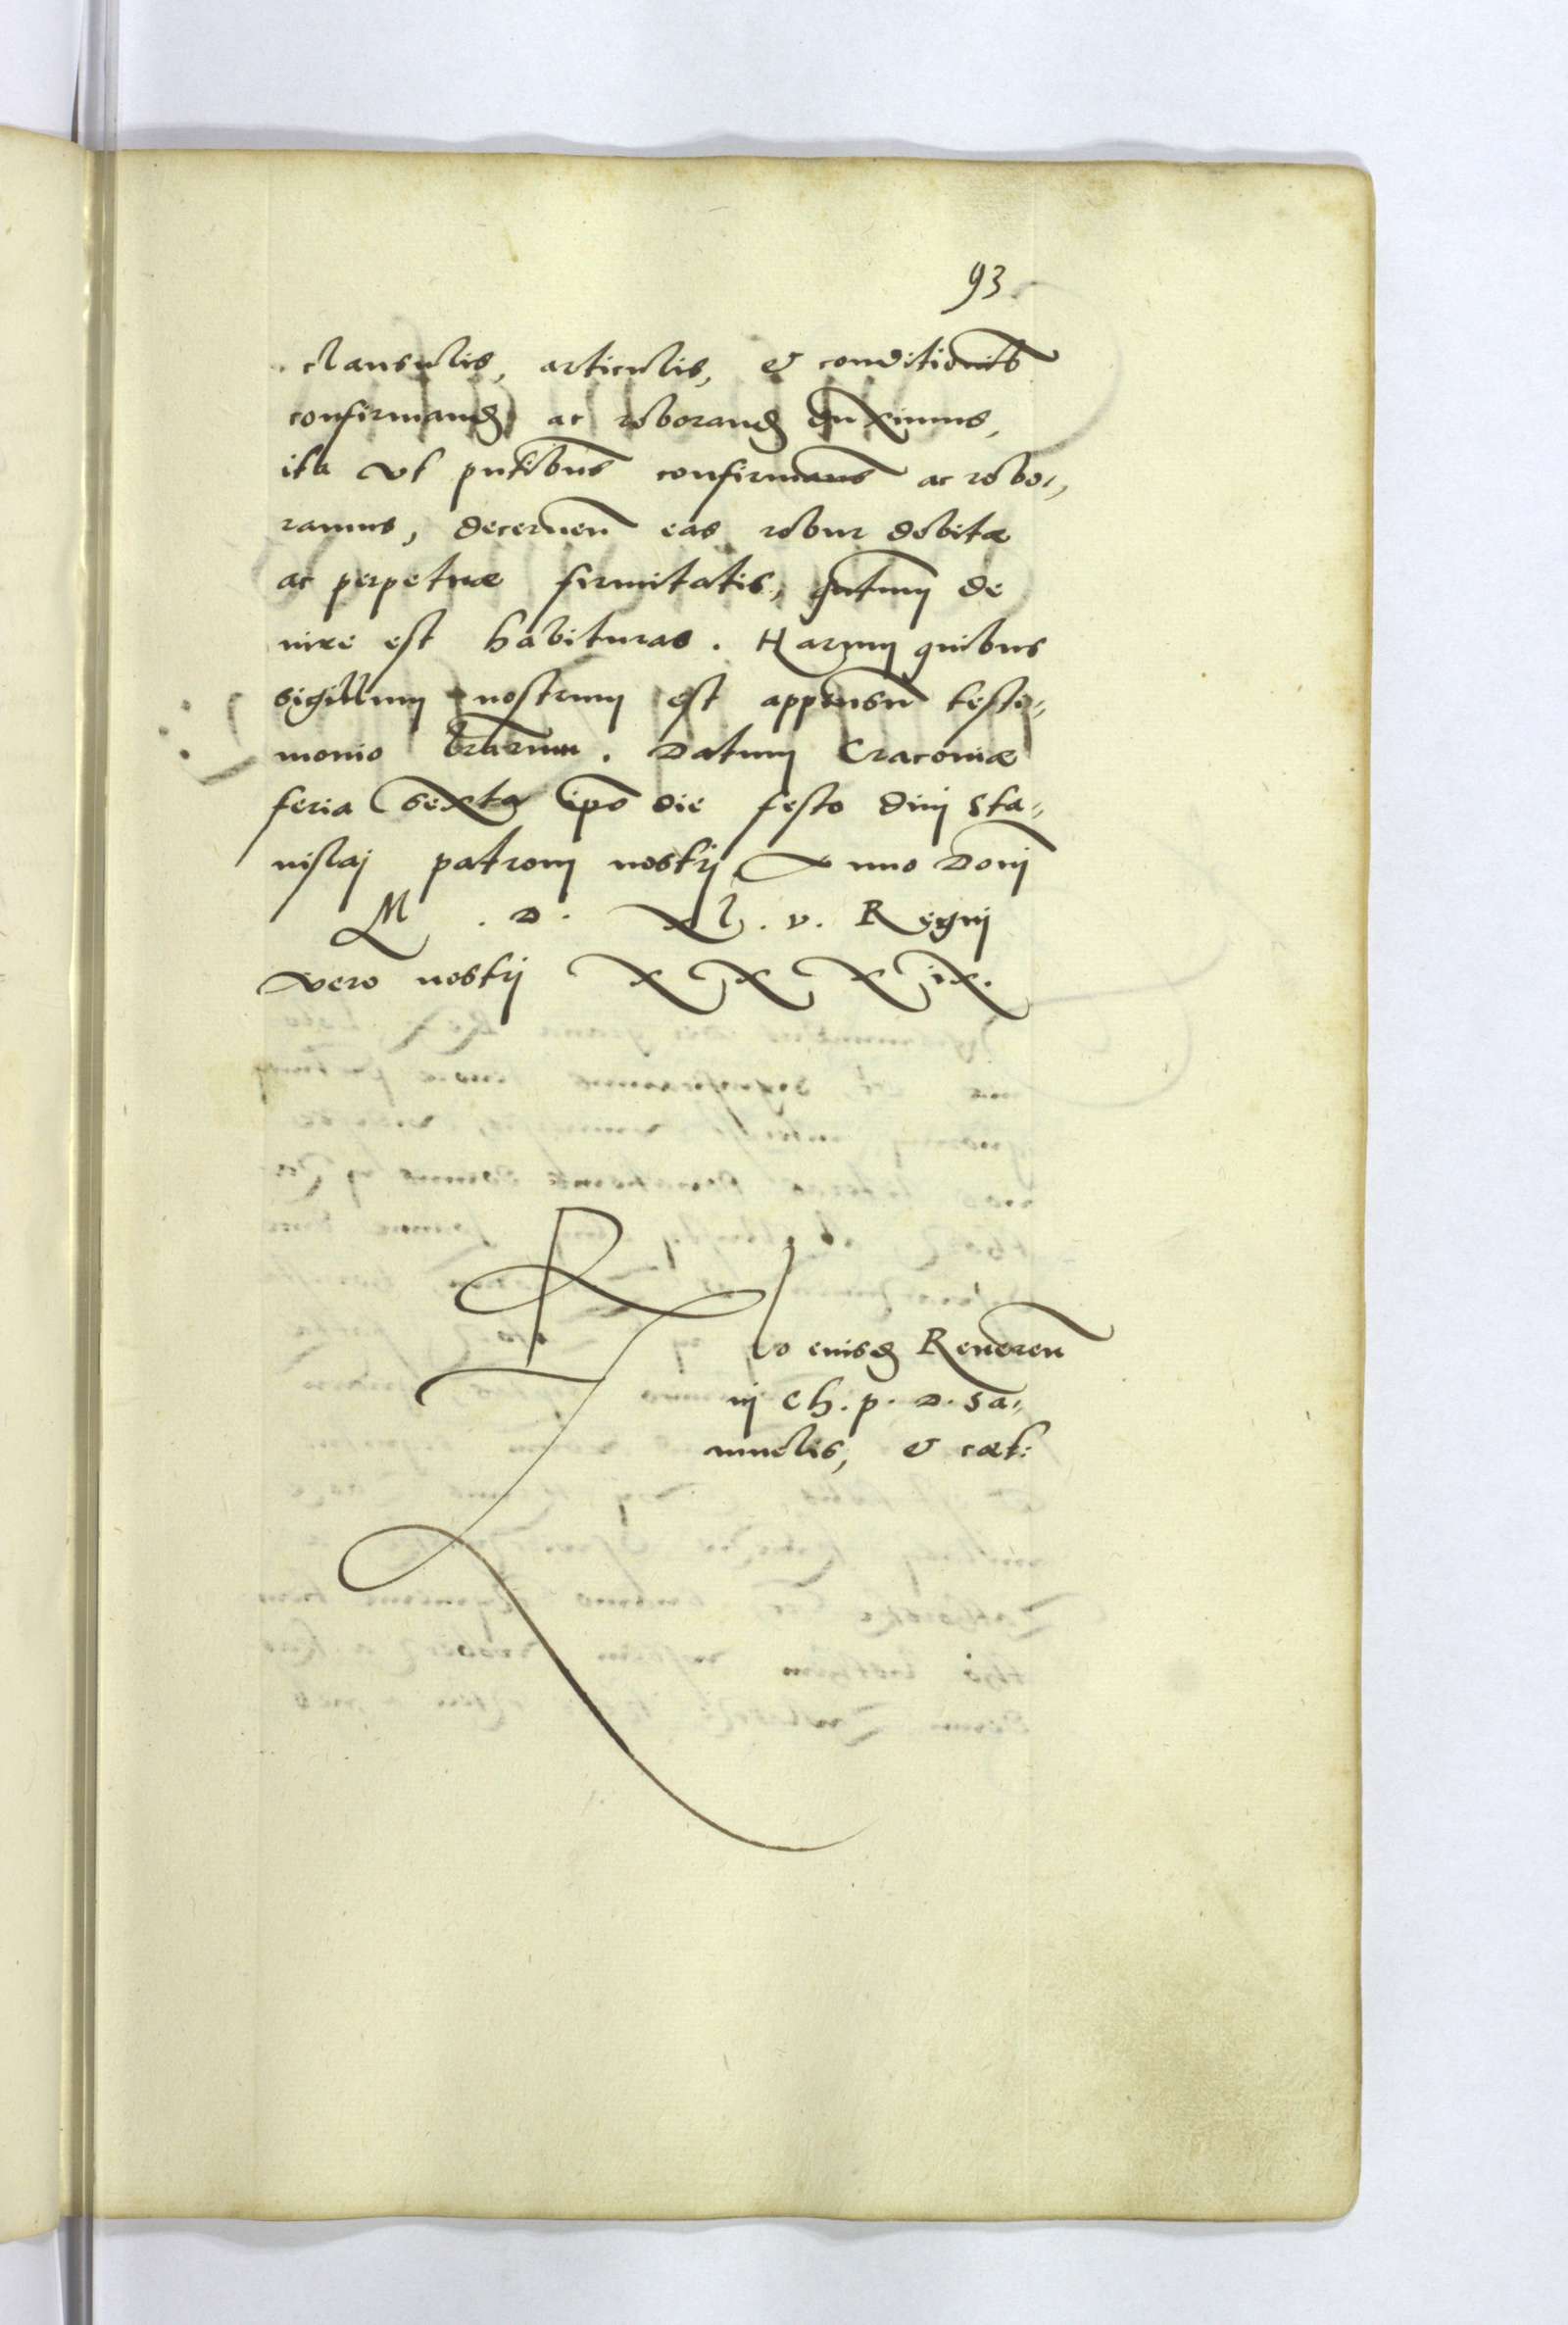 93
clausulis, articulis, & conditionib
confirmand ac roborand duximus,
ita vt pntibus confirmams ac robo-,
ramus, decernen eas robur debitæ
ac perpetuæ firmitatis, qntum de
iure est habituras. Harum quibus
sigillum nostrum est appensu testi-,
monio lrarum. Datum Cracouiæ
feria sexta ipo die festo diui Sta-,
nislaj patronj nostrj Anno Donj
M. D. Xl. v. Regnj
vero nostrj XXXix.
R
lo eiusd Reueren
in Ch. p. D. Sa-,
muelis, & cæt: